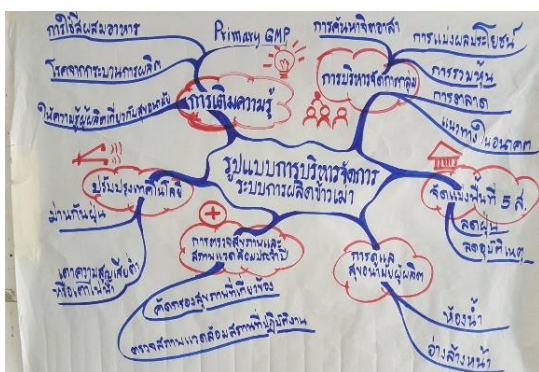 รูปแบบการบริหารจัดการ
ระบบการผลิตข้าวเม่า
การเติมความรู้
การใช้สีผสมอาหาร
Primary GMP
โรคจากกระบวนการผลิต
ให้ความรู้ผู้ผลิตเกี่ยวกับสุขอนามัย
การบริหารจัดการกลุ่ม
การค้นหาจิตอาสา
การแบ่งผลประโยชน์
การรวมหุ้น
การตลาด
แนวทางในอนาคต
จัดแบ่งพื้นที่ 5 ส.
ลดฝุ่น
ลดอุบัติเหตุ
การดูแล
สุขอนามัยผู้ผลิต
ห้องน้ำ
อ่างล้างหน้า
การตรวจสุขภาพและ
สภาพแวดล้อมประจำปี
คัดกรองสุขภาพที่เกี่ยวข้อง
ตรวจสภาพแวดล้อมสถานที่ปฏิบัติงาน
ปรับปรุงเทคโนโลยี
ม่านกันฝุ่น
เตาความสูญเสียต่ำ